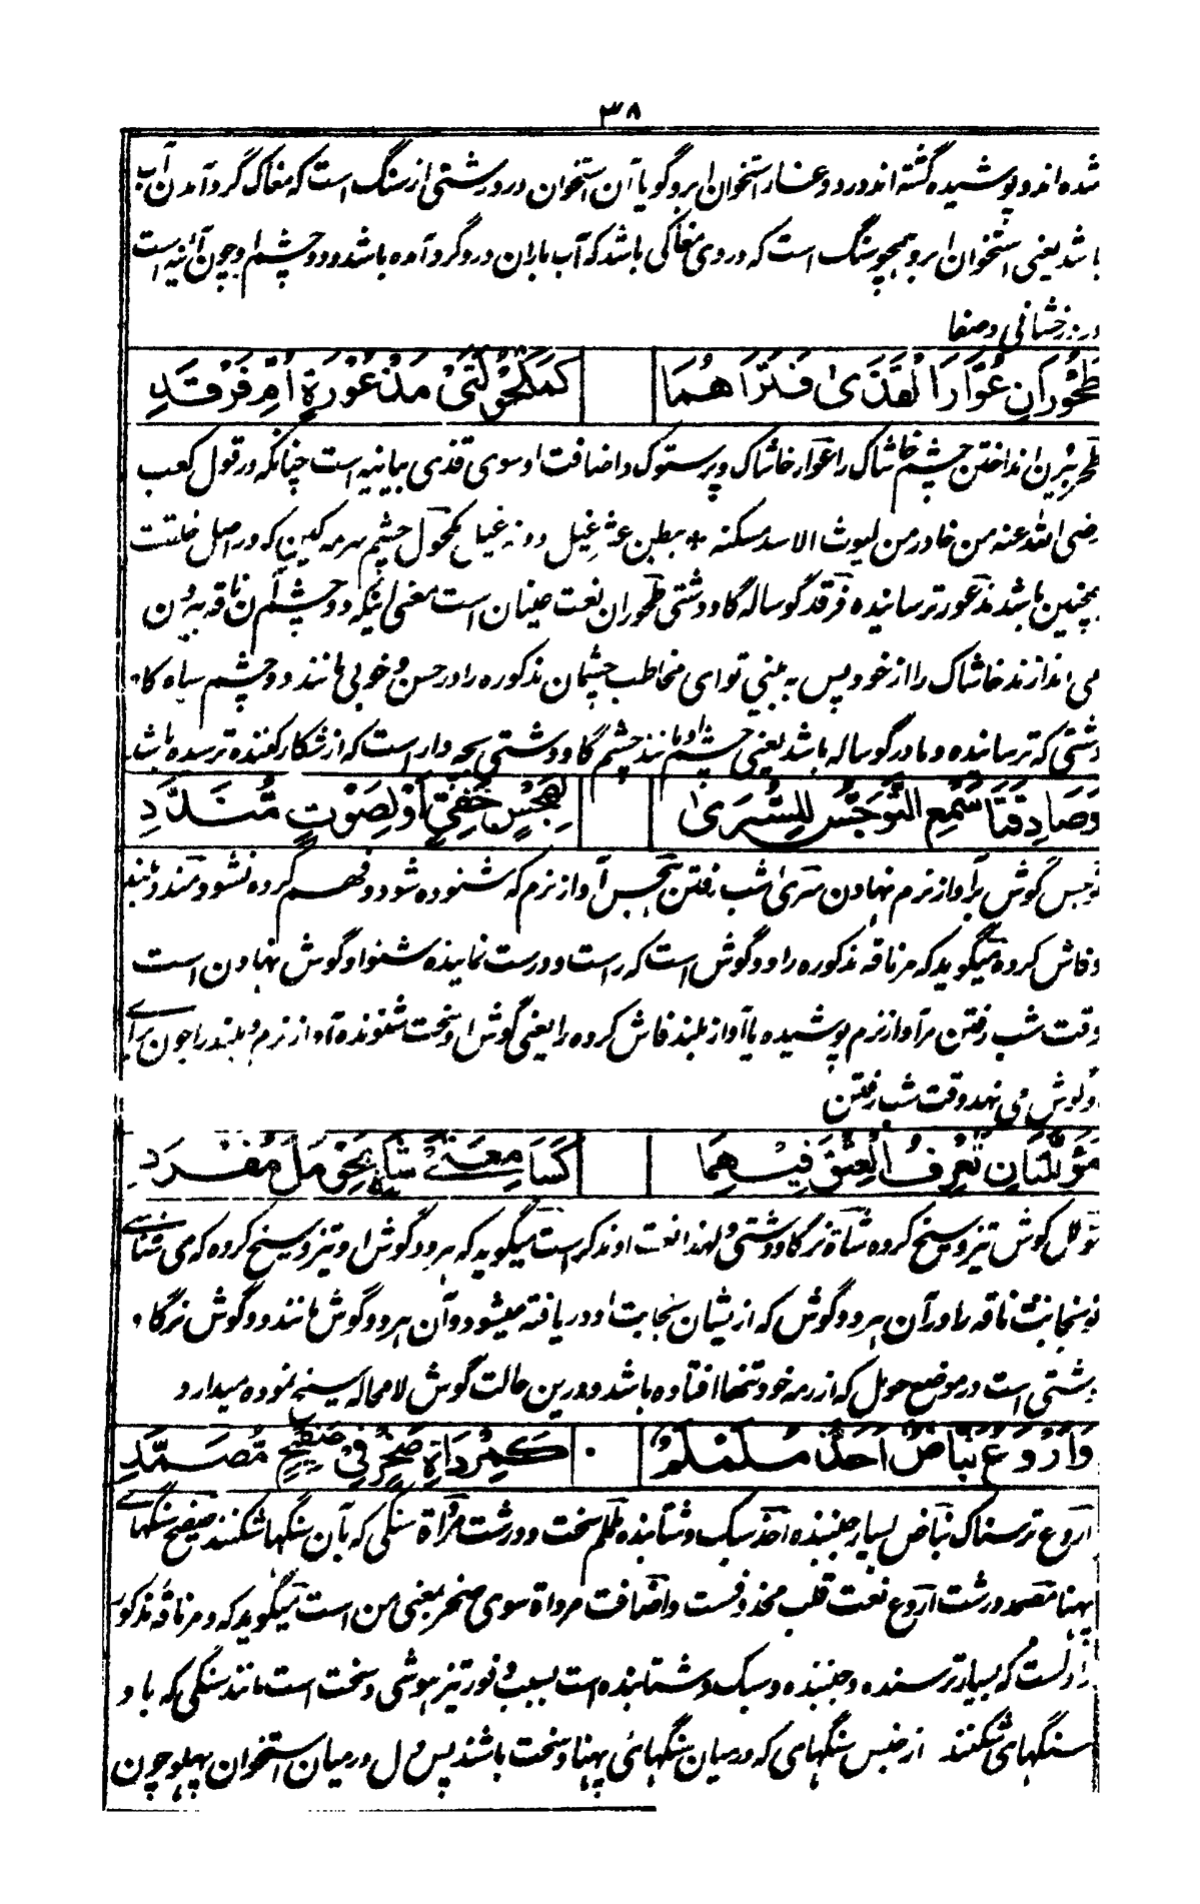 ۳۸
شده اند و پوشیده گشته اند در دو غار استخوان ابرو گویا آن استخوان در درشتی از سنگ است که مغاک گرد آمدن آب
باشد یعنی استخوان ابرو همچو سنگ است که در وی مغاکی باشد که آب باران درو گرد آمده باشد و دو چشم او چون آئینه است
در درخشانی و صفا
طَحُورَانِ عُوَّارَ الْقَذَىٰ فَتَرَاهُمَا كَمَكْحُولَتَيْ مَذْعُورَةٍ أُمِّ فَرْقَدِ
طحر بیرون انداختن چشم خاشاک را عوار خاشاک و پرستوک و اضافت او سوی قذی بیانیه است چنانکه در قول کعب
رضی الله عنه من خادر من لیوث الاسد مسکنه + ببطن عثر غیل دونه غیل مکحول چشم سرمه کین که در اصل خلقت
همچنین باشد مذعور ترسانیده فرقد گوساله گاو دشتی طحوران نعت عینان است معنی اینکه دو چشم آن ناقه بیرون
می اندازند خاشاک را از خود پس به بینی تو ای مخاطب چشمان مذکوره را در حسن و خوبی مانند دو چشم سیاه گاو
دشتی که ترسانده و مادر گوساله باشد یعنی چشم او مانند چشم گاو دشتی بچه دار است که از شکار کننده ترسیده باشد
وَصَادِقَتَا سَمْعِ التَّوَجُّسِ لِلسُّرَىٰ لِهَجْسٍ خَفِيٍّ أَوْ لِصَوْتٍ مُّنَدَّدِ
توجس گوش بر آواز نرم نهادن سری شب رفتن هجس آواز نرم که شنوده شود و فهم کرده نشود مندد بلند
و فاش کرده میگوید که مر ناقه مذکوره را دو گوش است که راست و درست نماینده شنوا و گوش نهادن است
وقت شب رفتن مر آواز نرم پوشیده یا آواز بلند فاش کرده را یعنی گوش او سخت شنونده آواز نرم و بلند را چون برای
او گوش می نهد وقت شب رفتن
مُؤَلَّلَتَانِ تَعْرِفُ الْعِتْقَ فِيهِمَا كَسَامِعَتَيْ شَاةٍ بِحَوْمَلَ مُفْرَدِ
تولل گوش تیز و سیخ کرده شاة نر گاو دشتی و لهذا نعت او مذکر است میگوید که هر دو گوش او تیز و سیخ کرده که می شناسی
تو نجابت ناقه را در آن هر دو گوش که از نشان نجابت او دریافته میشود و آن هر دو گوش مانند دو گوش نر گاو
دشتی است در موضع حومل که از رمه خود تنها افتاده باشد و درین حالت گوش لا محاله سیخ نموده میدارد
وَأَرْوَعُ نَبَّاضٌ أَحَذُّ مُلَمْلَمٌ كَمِرْدَاةِ صَخْرٍ فِي صَفِيحٍ مُّصَمَّدِ
اروع ترسناک نباض بسیار جنبنده احذ سبک و شتابنده ململم سخت و درشت مرداة سنگی که بآن سنگها شکنند صفیح سنگهای
پهنا مصمد درشت اروع نعت قلب محذوفست و اضافت مرداة سوی صخر بمعنی من است میگوید که و مر ناقه مذکوره
را دلست که بسیار ترسنده و جنبنده و سبک و شتابنده است بسبب وفور تیز هوشی و سخت است مانند سنگی که با و
سنگهای شکنند از جنس سنگهای که درمیان سنگهای پهنا و سخت باشند پس دل درمیان استخوان پهلو چون